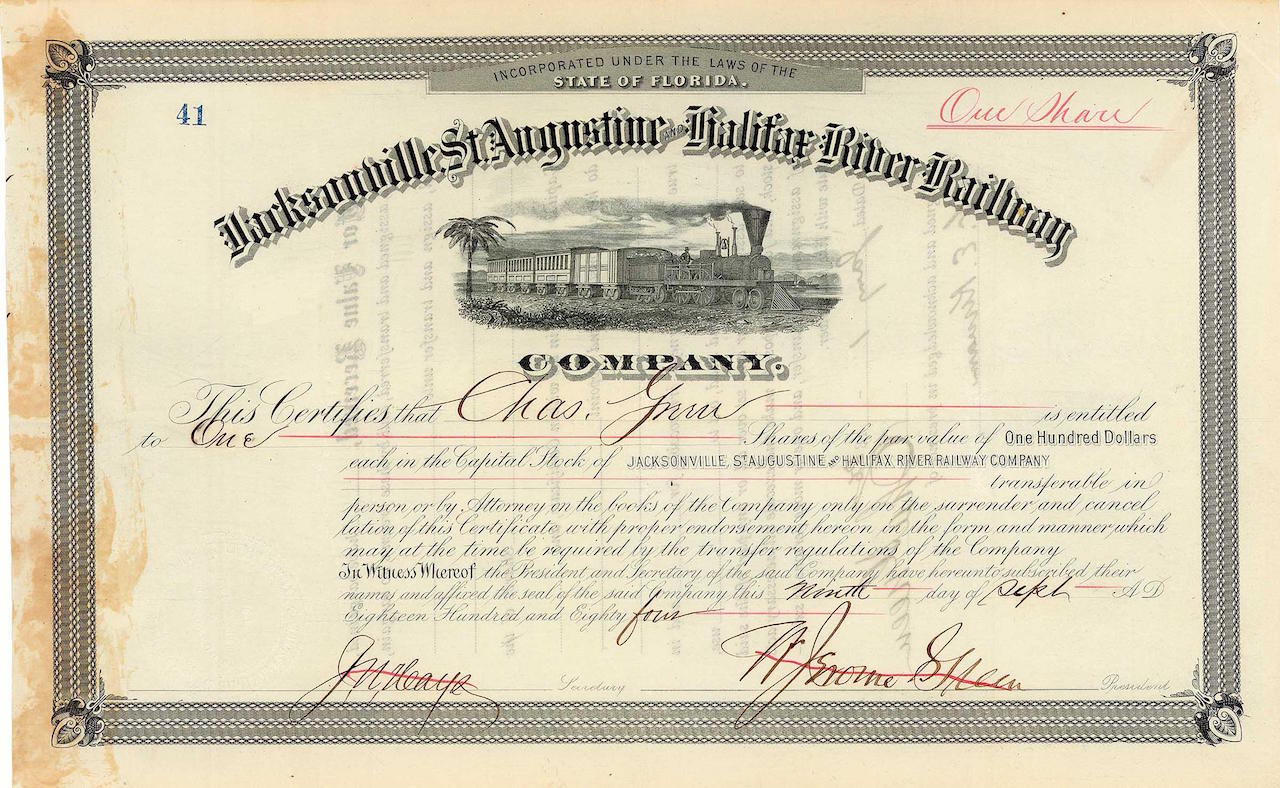 INCORPORATED UNDER THE LAWS OF THE
STATE OF FLORIDA.
41
One Share
Jacksonville, St Augustine AND Halifax River Railway
COMPANY.
This Certifies that Chas. Green is entitled
to One Shares of the par value of One Hundred Dollars
each in the Capital Stock of JACKSONVILLE, ST AUGUSTINE AND HALIFAX RIVER RAILWAY COMPANY
transferable in
person or by Attorney on the books of the Company only on the surrender and cancel
lation of this Certificate with proper endorsement hereon in the form and manner which
may at the time be required by the transfer regulations of the Company
In Witness Whereof the President and Secretary of the said Company have hereunto subscribed their
names and affixed the seal of the said Company this ninth day of Sept A D
Eighteen Hundred and Eighty four
Secretary
W Jerome Green President